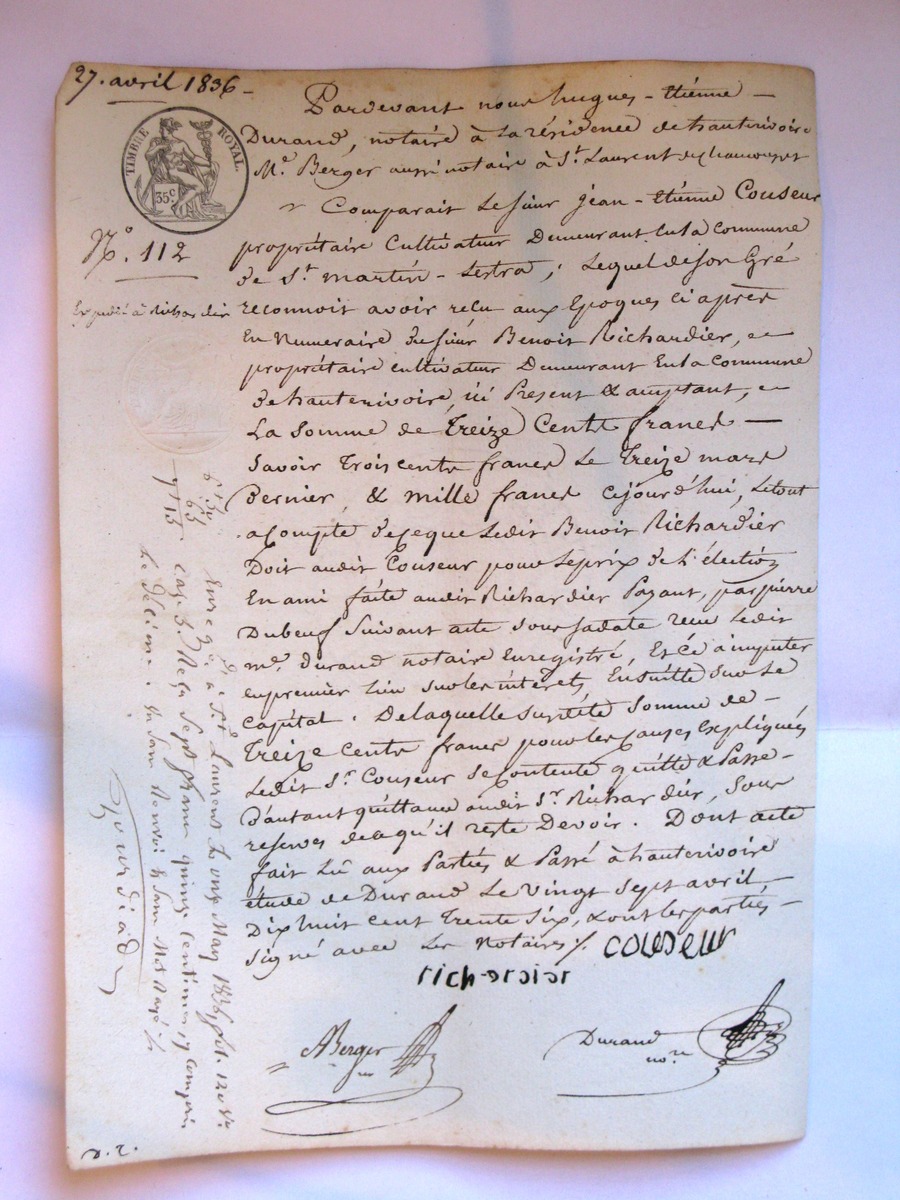 27. avril 1836 -
TIMBRE ROYAL
35 c.
N.º 112
Expédié à Richardier
Pardevant nous hugues - Etiénne -
Durand, notaire à la résidence de hauterivoire
Mᵉ. Berger aussi notaire à Sᵗ. Laurent dechamousset
Comparait le sieur jéan - Etiénne Couseur
propriétaire Cultivateur Demeurant en la Commune
de Sᵗ. martin - Lestra, lequel de son Gré
reconnoit avoir recu aux Epoques ci après
En Numeraire du sieur Benoit Richardier,
propriétaire cultivateur Demeurant En la Commune
de hauterivoire, ici Present & acceptant,
La Somme de Treize Cents francs -
Savoir Trois cents francs le Treize mars
Dernier, & mille francs cejourd'hui, letout
acompte de ceque ledit Benoit Richardier
Doit audit Couseur pour leprix de l'élection
En ami faite audit Richardier Payant, par pierre
Dubeuf Suivant acte sous sa date recu ledit
mᵉ. Durand notaire Enregistré, Et ce à imputer
enpremier lieu sur les interets, Ensuitte sur le
capital. Delaquelle susditte Somme de -
Treize cents francs pour les causes Expliquées
Ledit Sʳ. Couseur se contente quitte & Passe -
D'autant quittance audit Sʳ. Richardier, Sous
reserves de ce qu'il reste Devoir. Dont acte
fait Lû aux Parties & Passé à hauterivoire
étude de Durand Le Vingt Sept avril -
Dix huit cent Trente Six, & ont les parties -
Signé avec les Notaires /.
couseur
richardier
ABerger
Durand
noʳᵉ
Enreg. à Sᵗ. Laurent le onze May 1836, fol. 120 Vᵒ
case 3. Reçu Sept francs quinze centimes y compris
le décime.
Gourdiad
6 50
65
7 15